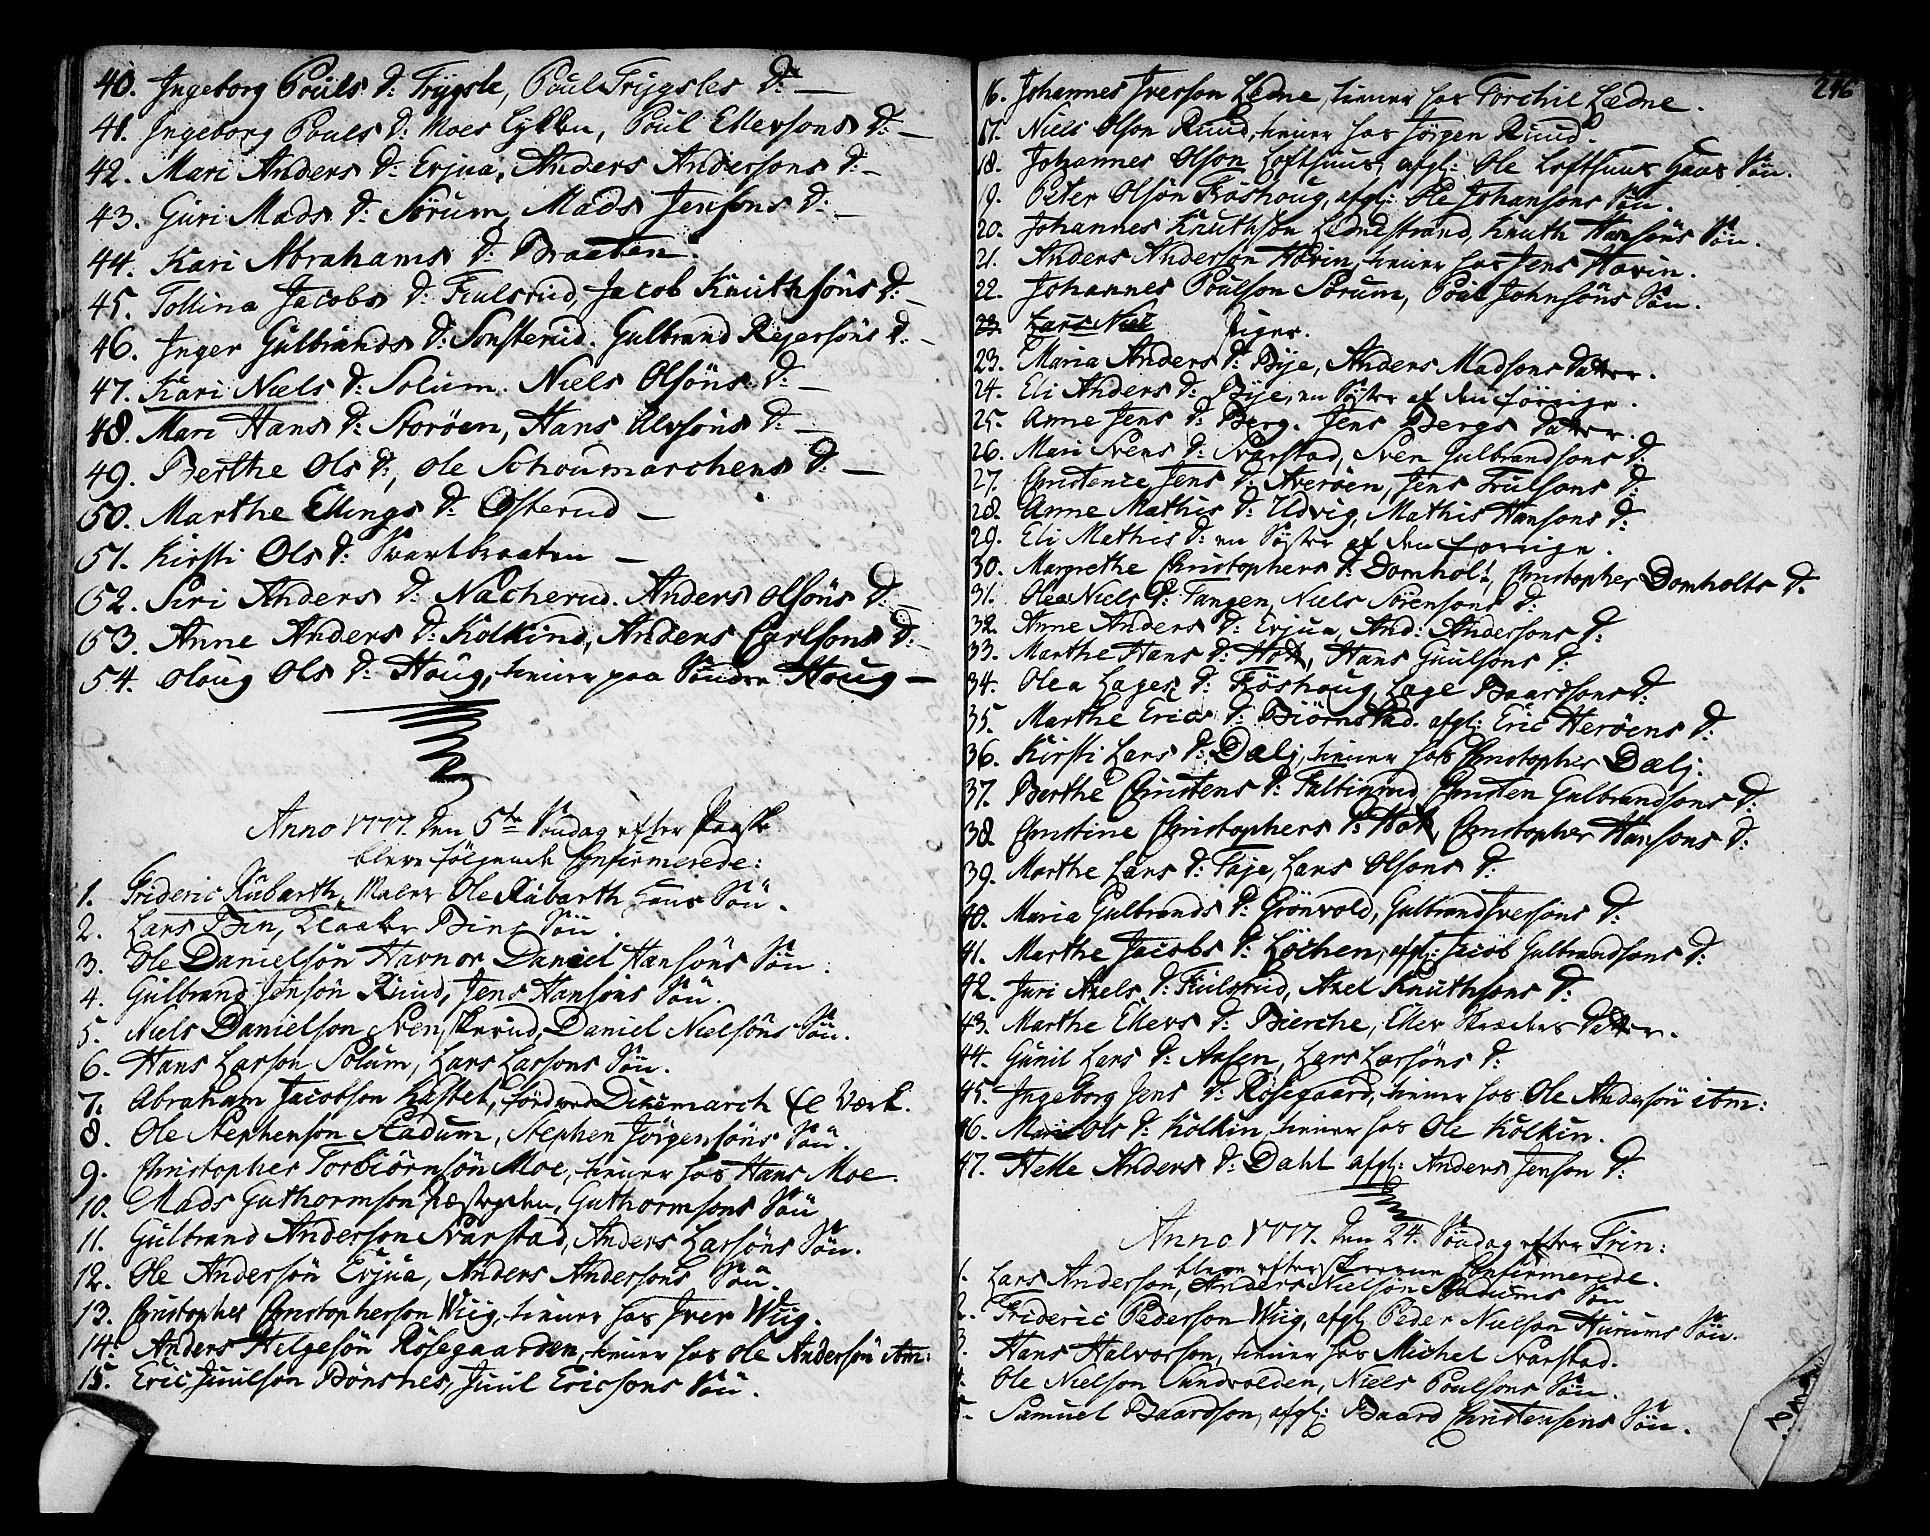 40. Ingeborg Pouls D: Frygsle, Poul Frygsles D: —
41. Ingeborg Pouls D: Moes Eykku, Poul Ellevsons D: —
42. Mari Anders D: Erjua, Anders Andersons D: —
43. Guri Mads D: Sørum, Mads Jensons D: —
44. Kari Abrahams D: Braaten.
45. Tollina Jacobs D: Fiulsrud, Jacob Knuthsøns D: —
46. Inger Gulbrands D: Sonsterud. Gulbrand Rejersøns D: —
47. Kari Niels D: Solum. Niels Olsøns D: —
48. Mari Hans D: Storøen, Hans Alvsøns D: —
49. Berthe Ols D:, Ole Schoumarchens D: —
50. Marthe Ellings D: Østerud —
51. Kirsti Ols D: Svartbraaten —
52. Siri Anders D: Nacherud. Anders Olsøns D: —
53. Anne Anders D: Kolkind, Anders Carlsons D: —
54. Oloug Ols D: Houg, tiener paa Søndre Houg —
Anno 1777. den 5te Søndag efter Paaske
bleve følgende Confirmerede:
1. Frideric Rubarth, Maler Ole Rubarth hans Søn.
2. Lars Bin, Klokker Bins Søn.
3. Ole Danielsøn Havnor Daniel Hansøns Søn.
4. Gulbrand Jensøn Ruud, Jens Hansøns Søn.
5. Niels Danielson Svenskerud, Daniel Nielsøns Søn.
6. Hans Larson Solum, Lars Larsons Søn.
7. Abraham Jacobson Kastel, fød ved Dikemarch Je Værk.
8. Ole Stephenson Stadum, Stephen Jörgensöns Søn.
9. Christopher Torbiörnsön Moe, tiener hos Hans Moe.
10. Mads Guthormson Præstegden, Guthormsons Søn
11. Gulbrand Anderson Svarstad, Anders Larsøns Søn.
12. Ole Andersøn Erjua, Anders Andersøns Søn.
13. Christopher Christopherson Wiig, tiener hos Iver Wiig.
14. Anders Helgesøn Rösegaarden, tiener hos Ole Andersøn ibm:
15. Eric Juulson Bönsnes, Juul Ericsons Søn.
216
16. Johannes Iverson Ledne, tiener hos Torchil Lædne.
17. Niels Olson Ruud, tiener hos Jörgen Ruud.
18. Johannes Olson Lofthuus, afgl: Ole Lofthuus hans Søn.
19. Peter Olsön Frøshoug, afgl: Ole Johansons Søn.
20. Johannes Knuthsøn Lednestrand, Knuth Hansøns Søn.
21. Anders Andersøn Hovin, tiener hos Jens Hovin.
22. Johannes Poulson Sørum, Poul Johnsøns Søn.
23. Lars Niel Piger.
23. Maria Anders D: Bye, Anders Madsons Datter.
24. Eli Anders D: Bye, en Søster af den forrige.
25. Anne Jens D: Berg. Jens Bergs Datter.
26. Mari Svens D: Svarstad, Sven Gulbrandsons D:
27. Christence Jens D: Averøen, Jens Truksons D:
28. Anne Mathis D: Udvig, Mathis Hansons D:
29. Eli Mathis D: en Søster af den forrige.
30. Margrethe Christophers D: Domholt, Christopher Domholts D:
31. Olea Niels D: Tangen, Niels Sörensons D:
32. Anne Anders D: Erjua, And: Andersons D:
33. Marthe Hans D: Hok, Hans Guulsons D:
34. Olea Lages D: Fröshoug, Lage Baardsons D:
35. Marthe Erics D: Biörnstad. afgl: Eric Herøens D:
36. Kirsti Lars D: Dælj, tiener hos Christopher Dælj.
37. Berthe Christens D: Faltinrud, Christen Gulbrandsons D:
38. Christine Christophers D: Hok, Christopher Hansons D:
39. Marthe Lars D: Faje, Lars Olsons D:
40. Maria Gulbrands D: Grönvold, Gulbrand Iversöns D:
41. Marthe Jacobs D: Løchen, afgl: Jacob Gulbrandsons D:
42. Juri Axels D: Fiulsrud, Axel Knuthsons D:
43. Marthe Ellevs D: Bierche, Ellev Skræders Datter.
44. Gunil Lars D: Aasen, Lars Larsøns D:
45. Ingeborg Jens D: Rösegaard, tiener hos Ole Andersøn ibm:
46. Mari Ols D: Kolkin, tiener hos Ole Kolkin.
47. Helle Anders D: Dahl afgl: Anders Jensøn D:
Anno 1777. den 24. Søndag efter Trin:
bleve Confirmerede.
1. Lars Anderson, Anders Nielson Stadums Søn
2. Frideric Pederson Wiig, afgl: Peder Nielson Hurums Søn.
3. Hans Halvorson, tiener hos Michel Svarstad.
4. Ole Nielson Sundvolden, Niels Poulsons Søn.
5. Samuel Baardson, afgl: Baard Christensens Søn.